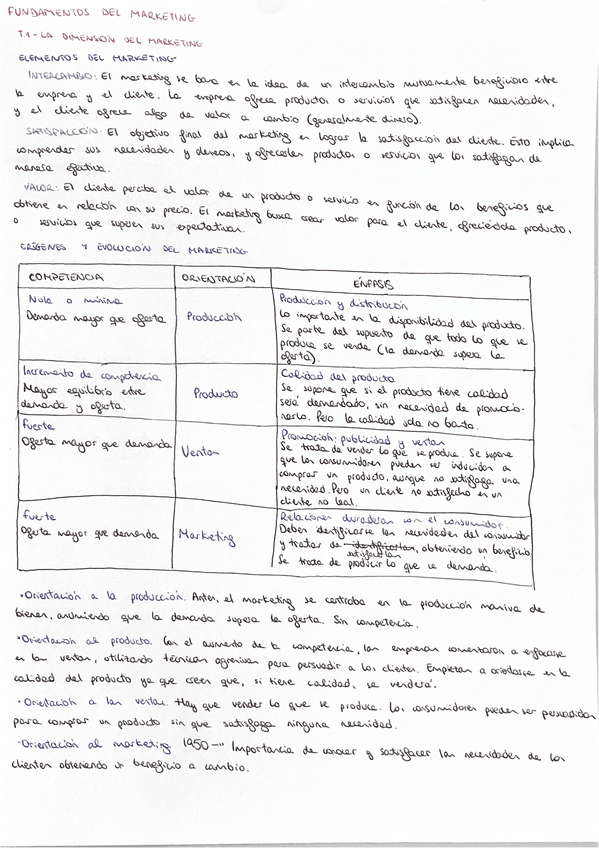 FUNDAMENTOS DEL MARKETING
T.1- LA DIMENSIÓN DEL MARKETING
ELEMENTOS DEL MARKETING
INTERCAMBIO: El marketing se basa en la idea de un intercambio mutuamente beneficioso entre
la empresa y el cliente. La empresa ofrece productos o servicios que satisfacen necesidades,
y el cliente ofrece algo de valor a cambio (generalmente dinero).
SATISFACCIÓN: El objetivo final del marketing es lograr la satisfacción del cliente. Esto implica
comprender sus necesidades y deseos, y ofrecerles productos o servicios que los satisfagan de
manera efectiva.
VALOR: El cliente percibe el valor de un producto o servicio en función de los beneficios que
obtiene en relación con su precio. El marketing busca crear valor para el cliente, ofreciéndole productos
o servicios que superen sus expectativas.
ORÍGENES Y EVOLUCIÓN DEL MARKETING
COMPETENCIA ORIENTACIÓN ÉNFASIS
Nula o mínima
Demanda mayor que oferta
Producción
Producción y distribución
Lo importante es la disponibilidad del producto.
Se parte del supuesto de que todo lo que se
produce se vende (la demanda supera la
oferta).
Incremento de competencia
Mayor equilibrio entre
demanda y oferta.
Producto
Calidad del producto
Se supone que si el producto tiene calidad
será demandado, sin necesidad de promocio-
narlo. Pero la calidad sola no basta.
Fuerte
Oferta mayor que demanda
Ventas
Promoción: publicidad y ventas
Se trata de vender lo que se produce. Se supone
que los consumidores pueden ser inducidos a
comprar un producto, aunque no satisfaga una
necesidad. Pero un cliente no satisfecho es un
cliente no leal.
Fuerte
Oferta mayor que demanda
Marketing
Relaciones duraderas con el consumidor.
Deben identificarse las necesidades del consumidor
y tratar de identificarlas, obteniendo un beneficio
satisfacerlas
Se trata de producir lo que se demanda.
•Orientación a la producción. Antes, el marketing se centraba en la producción masiva de
bienes, asumiendo que la demanda supera la oferta. Sin competencia.
•Orientación al producto. Con el aumento de la competencia, las empresas comenzaron a enfocarse
en las ventas, utilizando técnicas agresivas para persuadir a los clientes. Empiezan a orientarse en la
calidad del producto ya que creen que, si tiene calidad, se venderá.
•Orientación a las ventas. Hay que vender lo que se produce. Los consumidores pueden ser persuadidos
para comprar un producto sin que satisfaga ninguna necesidad.
•Orientación al marketing. 1950→ Importancia de conocer y satisfacer las necesidades de los
clientes obteniendo un beneficio a cambio.